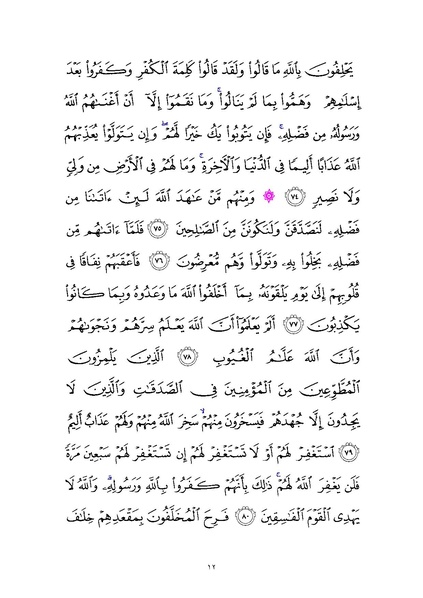 يَحْلِفُونَ بِاللَّهِ مَا قَالُوا۟ وَلَقَدْ قَالُوا۟ كَلِمَةَ الْكُفْرِ وَكَفَرُوا۟ بَعْدَ
إِسْلَٰمِهِمْ وَهَمُّوا۟ بِمَا لَمْ يَنَالُوا۟ۚ وَمَا نَقَمُوٓا۟ إِلَّآ أَنْ أَغْنَىٰهُمُ اللَّهُ
وَرَسُولُهُۥ مِن فَضْلِهِۦۚ فَإِن يَتُوبُوا۟ يَكُ خَيْرًا لَّهُمْۖ وَإِن يَتَوَلَّوْا۟ يُعَذِّبْهُمُ
اللَّهُ عَذَابًا أَلِيمًا فِى الدُّنْيَا وَالْـَٔاخِرَةِۚ وَمَا لَهُمْ فِى الْأَرْضِ مِن وَلِىٍّ
وَلَا نَصِيرٍ ٧٤ ۞ وَمِنْهُم مَّنْ عَٰهَدَ اللَّهَ لَئِنْ ءَاتَىٰنَا مِن
فَضْلِهِۦ لَنَصَّدَّقَنَّ وَلَنَكُونَنَّ مِنَ الصَّٰلِحِينَ ٧٥ فَلَمَّآ ءَاتَىٰهُم مِّن
فَضْلِهِۦ بَخِلُوا۟ بِهِۦ وَتَوَلَّوا۟ وَّهُم مُّعْرِضُونَ ٧٦ فَأَعْقَبَهُمْ نِفَاقًا فِى
قُلُوبِهِمْ إِلَىٰ يَوْمِ يَلْقَوْنَهُۥ بِمَآ أَخْلَفُوا۟ اللَّهَ مَا وَعَدُوهُ وَبِمَا كَانُوا۟
يَكْذِبُونَ ٧٧ أَلَمْ يَعْلَمُوٓا۟ أَنَّ اللَّهَ يَعْلَمُ سِرَّهُمْ وَنَجْوَىٰهُمْ
وَأَنَّ اللَّهَ عَلَّٰمُ الْغُيُوبِ ٧٨ الَّذِينَ يَلْمِزُونَ
الْمُطَّوِّعِينَ مِنَ الْمُؤْمِنِينَ فِى الصَّدَقَٰتِ وَالَّذِينَ لَا
يَجِدُونَ إِلَّا جُهْدَهُمْ فَيَسْخَرُونَ مِنْهُمْۙ سَخِرَ اللَّهُ مِنْهُمْ وَلَهُمْ عَذَابٌ أَلِيمٌ
٧٩ اسْتَغْفِرْ لَهُمْ أَوْ لَا تَسْتَغْفِرْ لَهُمْ إِن تَسْتَغْفِرْ لَهُمْ سَبْعِينَ مَرَّةً
فَلَن يَغْفِرَ اللَّهُ لَهُمْۚ ذَٰلِكَ بِأَنَّهُمْ كَفَرُوا۟ بِاللَّهِ وَرَسُولِهِۦۗ وَاللَّهُ لَا
يَهْدِى الْقَوْمَ الْفَٰسِقِينَ ٨٠ فَرِحَ الْمُخَلَّفُونَ بِمَقْعَدِهِمْ خِلَٰفَ
١٢